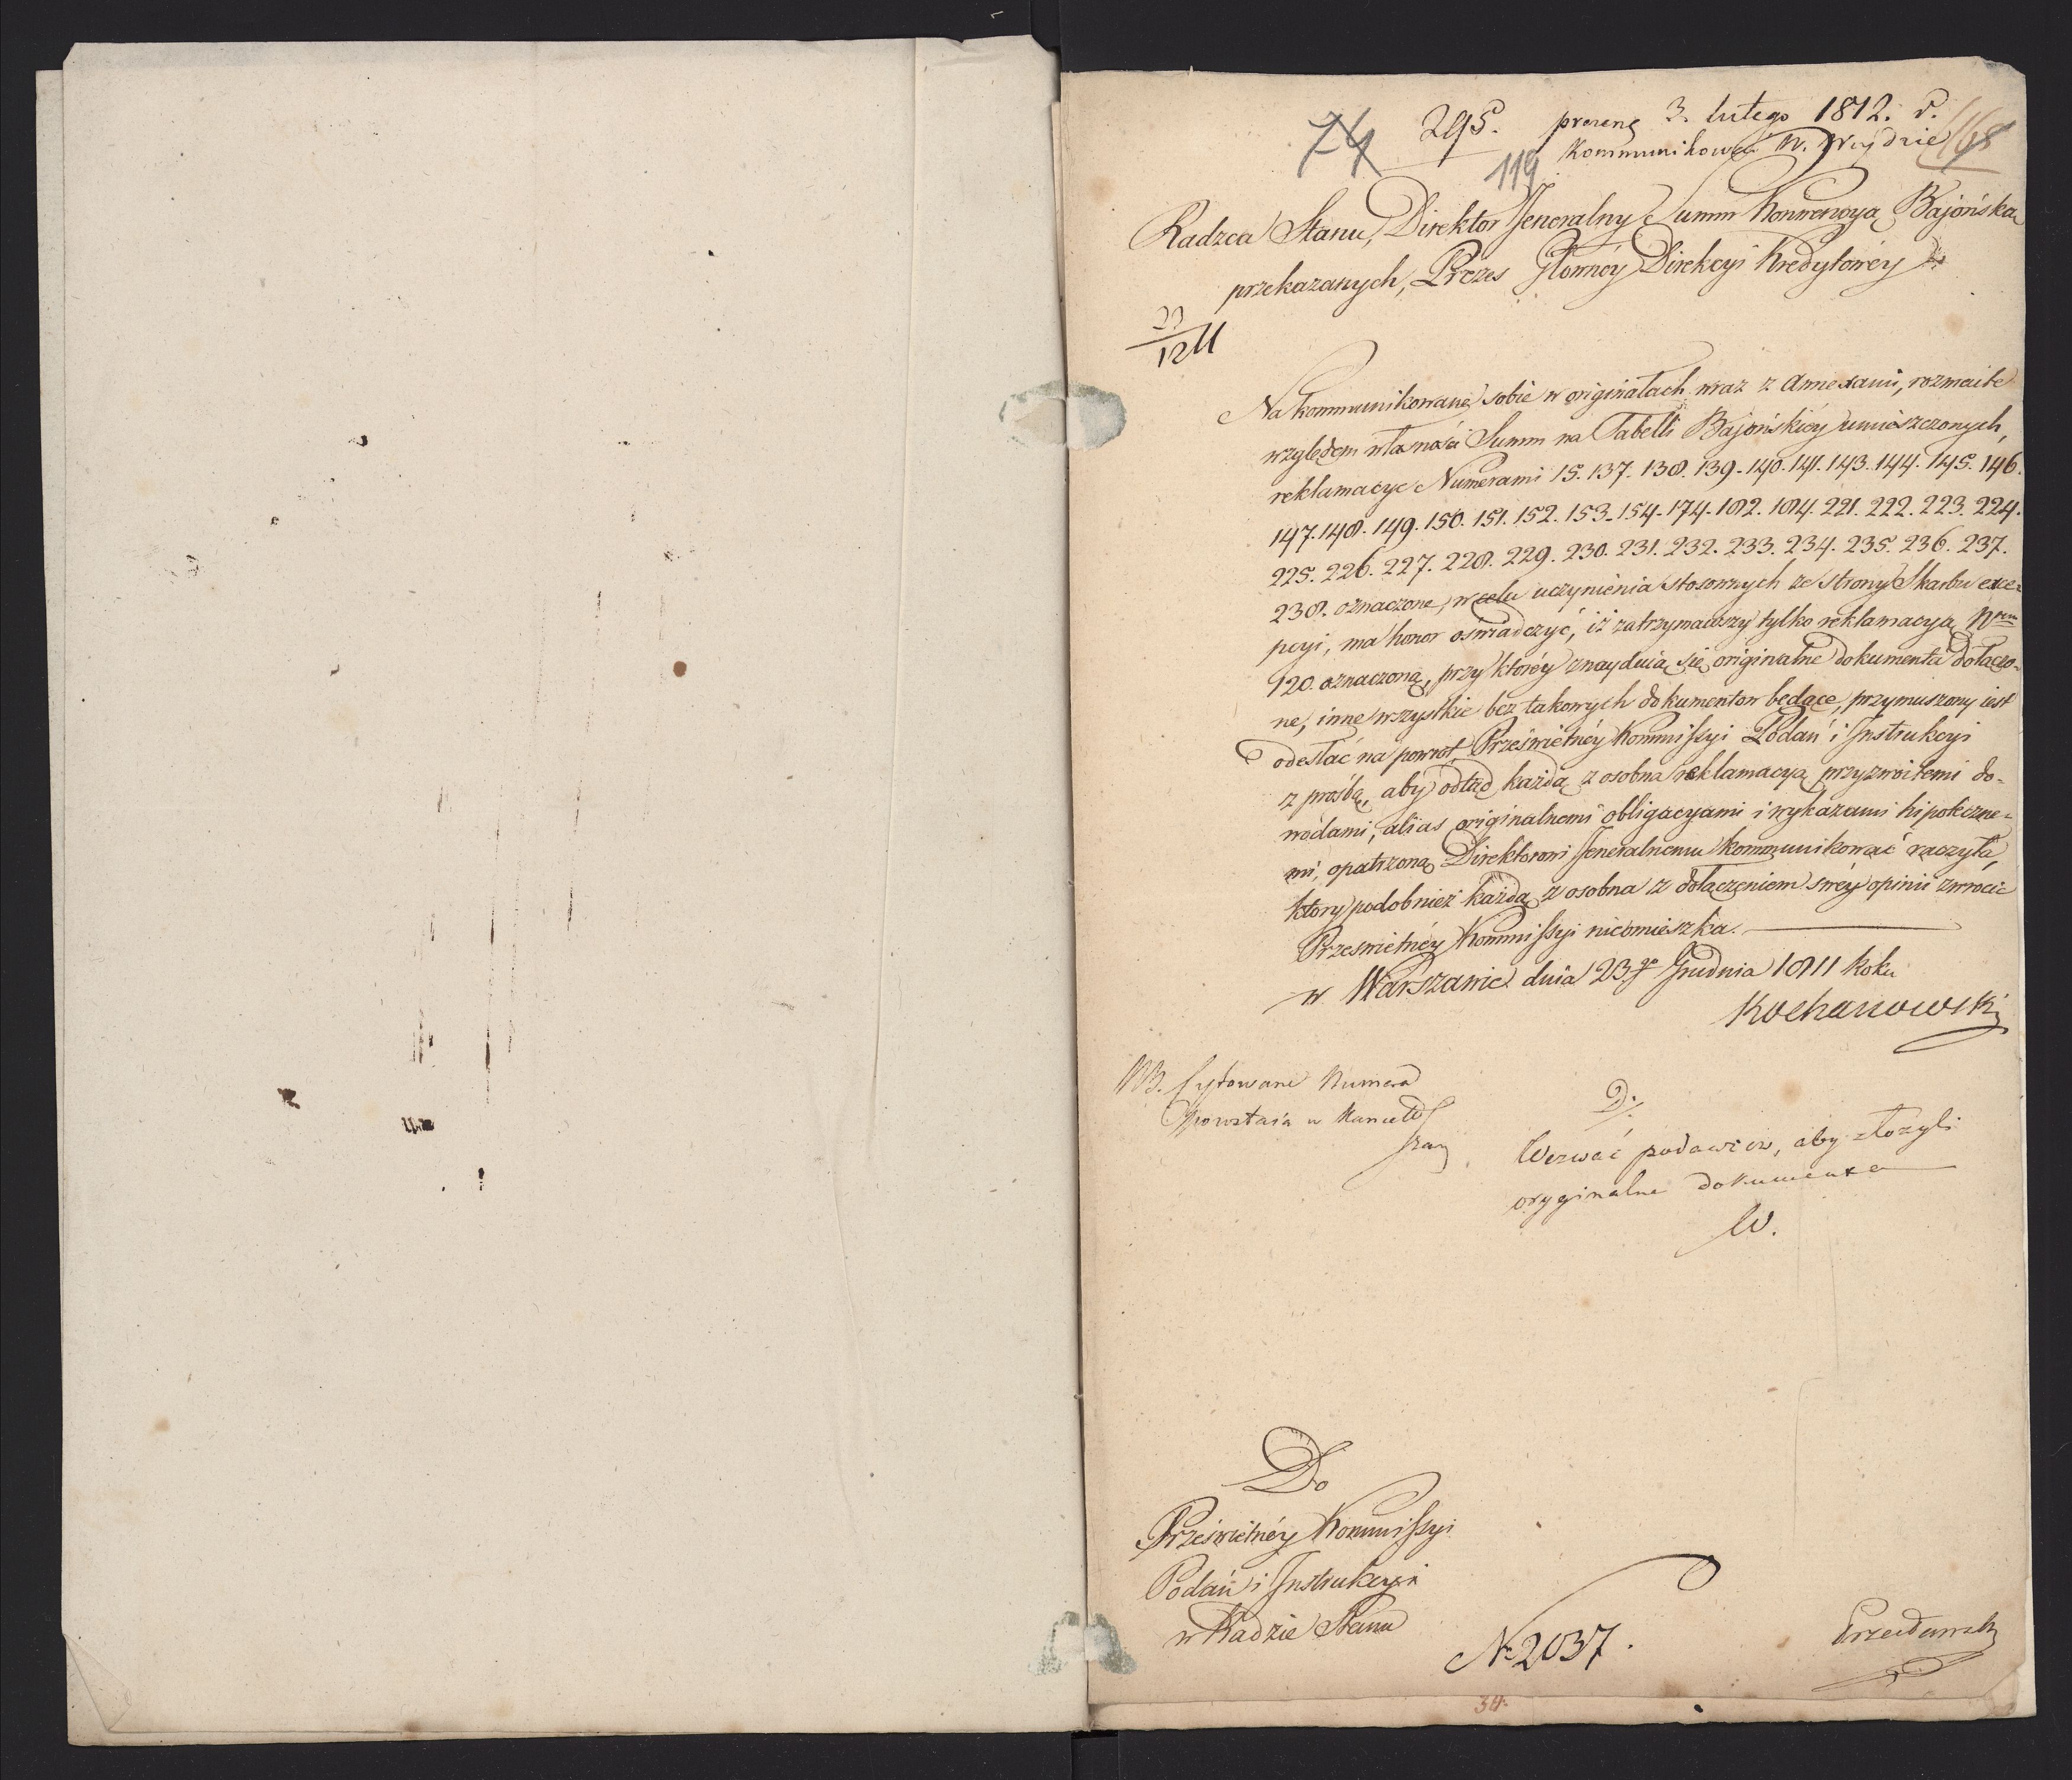 74 295. prezent 3. lutego 1812. r.
119 Kommunikowa. W. Woydzie 168
Radzca Stanu, Direktor Jeneralny Summ Konwencyą Bajońską
przekazanych, Prezes Głowney Direkcyi Kredytowéy
23/12 11
Na kommunikowane sobie w originałach wraz z Annexami, rozmaite
względem własności Summ na Tabelli Bajońskiéy umieszczonych,
reklamacye Numerami 15. 137. 138. 139. 140. 141. 143. 144. 145. 146.
147. 148. 149. 150. 151. 152. 153. 154. 174. 182. 184. 221. 222. 223. 224.
225. 226. 227. 228. 229. 230. 231. 232. 233. 234. 235. 236. 237.
238. oznaczone, w celu uczynienia stosownych ze strony Skarbu exce=
pcyi, ma honor oświadczyć, iż zatrzymawszy tylko reklamacyą Nrem
120. oznaczoną, przy któréy znayduią się originalne dokumenta dołączo=
ne, inne wszystkie bez takowych dokumentow będące, przymuszony iest
odesłać na powrot Prześwietnéy Kommissyi Podań i Instrukcyi
z prośbą, aby odtąd każdą z osobna reklamacyą przyzwoitemi do=
wodami, alias originalnemi obligacyami i wykazami hipoteczne=
mi, opatrzoną Direktorowi Jeneralnemu kommunikować raczyła,
ktory podobnież każdą z osobna z dołączeniem swéy opinii zwrocić
Prześwietnéy Kommissyi nieomieszka.
w Warszawie dnia 23go Grudnia 1811 Roku
Kochanowski
NB. Cytowane Numera
Powstaią w Kancell
D.
Wezwać podawcow, aby złożyli
oryginalne dokumenta
W.
Do
Prześwietnéy Kommissyi
Podań i Instrukcyi
w Radzie Stanu
N. 2037.
34.